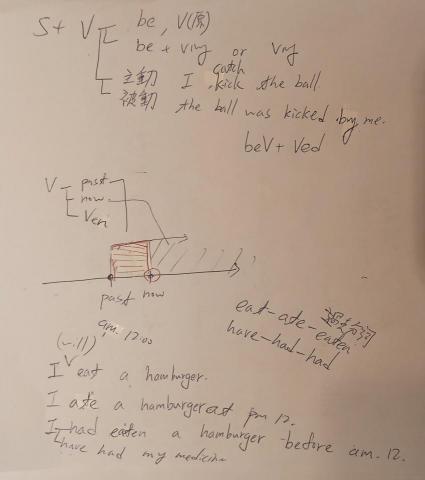 S + V be, V(原)
be + Ving or Ving
catch
主動 I kick the ball.
被動 the ball was kicked by me.
beV + Ved
V past
now
Ven
past now
am. 12:00
eat-ate-eaten 過去分詞
have-had-had
(will)
I eat a hamburger.
I ate a hamburger at pm 12.
I had eaten a hamburger before am. 12.
have had my medicine